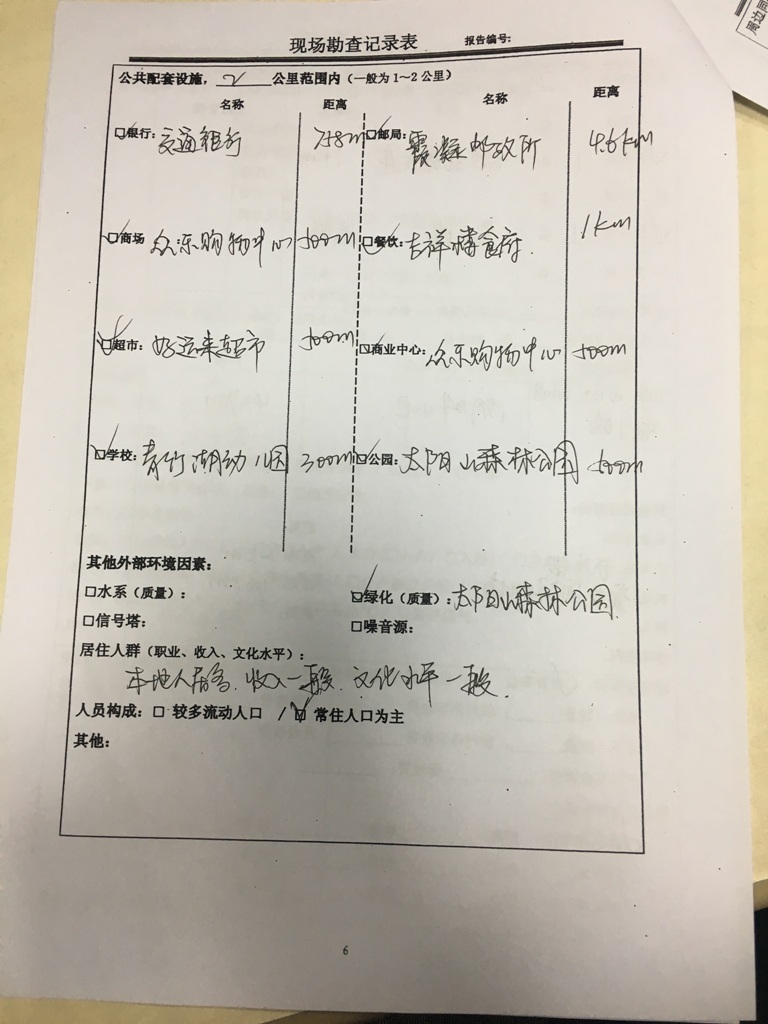 现场勘查记录表 报告编号:
公共配套设施，2公里范围内（一般为1～2公里）
名称 距离 名称 距离
☑银行: 交通银行 758m ☑邮局: 霞凝邮政所 4.6km
☑商场 众乐购物中心 500m ☑餐饮: 吉祥楼食府. 1km
☑超市: 好运来超市 500m ☑商业中心: 众乐购物中心 500m
☑学校: 青竹湖幼儿园 300m ☑公园: 太阳山森林公园 500m
其他外部环境因素:
□水系（质量）: ☑绿化（质量）: 太阳山森林公园
□信号塔: □噪音源:
居住人群（职业、收入、文化水平）:
本地人居多、收入一般、文化水平一般.
人员构成: □ 较多流动人口 / ☑ 常住人口为主
其他:
6